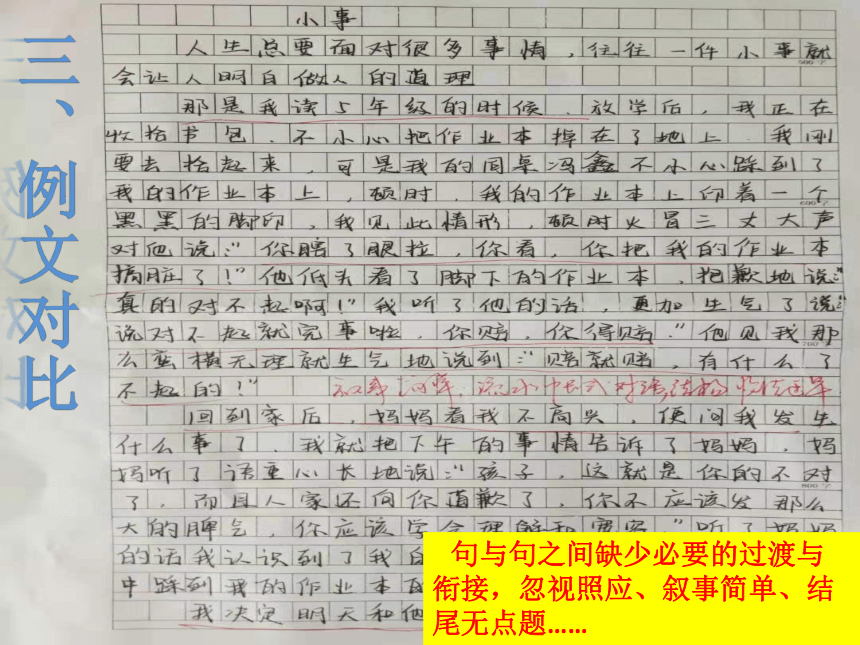 三、例文对比
小事
人生总要面对很多事情，往往一件小事就
会让人明白做人的道理
那是我读5年级的时候．放学后，我正在
收拾书包．不小心把作业本掉在了地上．我刚
要去拾起来，可是我的同桌冯鑫不小心踩到了
我的作业本上，顿时，我的作业本上印着一个
黑黑的脚印，我见此情形，顿时火冒三丈大声
对他说:"你瞎了眼拉，你看，你把我的作业本
搞脏了！"他低头看了脚下的作业本，抱歉地说:"
真的对不起啊！"我听了他的话，更加生气了说:
说对不起就完事啦，你赔，你得赔．"他见我那
么蛮横无理就生气地说到:"赔就赔，有什么了
不起的！"
回到家后，妈妈看我不高兴，便问我发生
什么事了．我就把下午的事情告诉了妈妈，妈
妈听了语重心长地说:"孩子，这就是你的不对
了．而且人家还向你道歉了，你不应该发那么
大的脾气，你应该学会理解和宽容．"听了妈妈
的话我认识到了我
中踩到我的作业本
我决定明天和他
句与句之间缺少必要的过渡与
衔接，忽视照应、叙事简单、结
尾无点题……